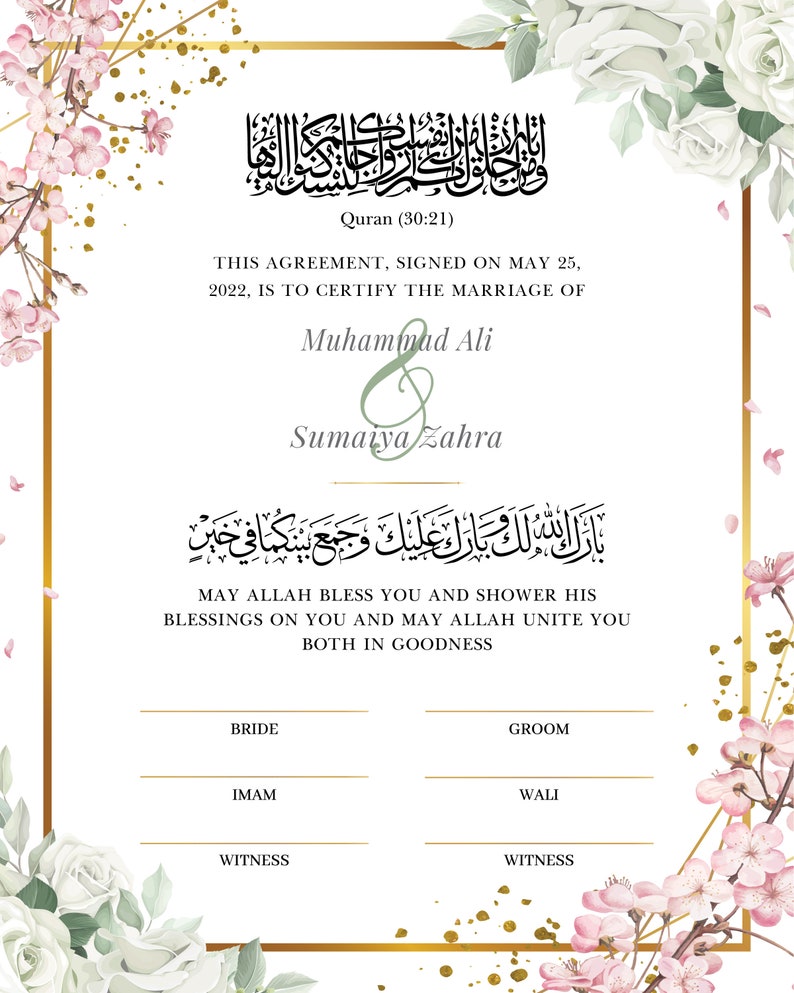 ومن آياته أن خلق لكم من أنفسكم أزواجا لتسكنوا إليها
Quran (30:21)
THIS AGREEMENT, SIGNED ON MAY 25,
2022, IS TO CERTIFY THE MARRIAGE OF
Muhammad Ali
&
Sumaiya Zahra
بَارَكَ اللهُ لَكَ وَبَارَكَ عَلَيْكَ وَجَمَعَ بَيْنَكُمَا فِي خَيْرٍ
MAY ALLAH BLESS YOU AND SHOWER HIS
BLESSINGS ON YOU AND MAY ALLAH UNITE YOU
BOTH IN GOODNESS
BRIDE
GROOM
IMAM
WALI
WITNESS
WITNESS